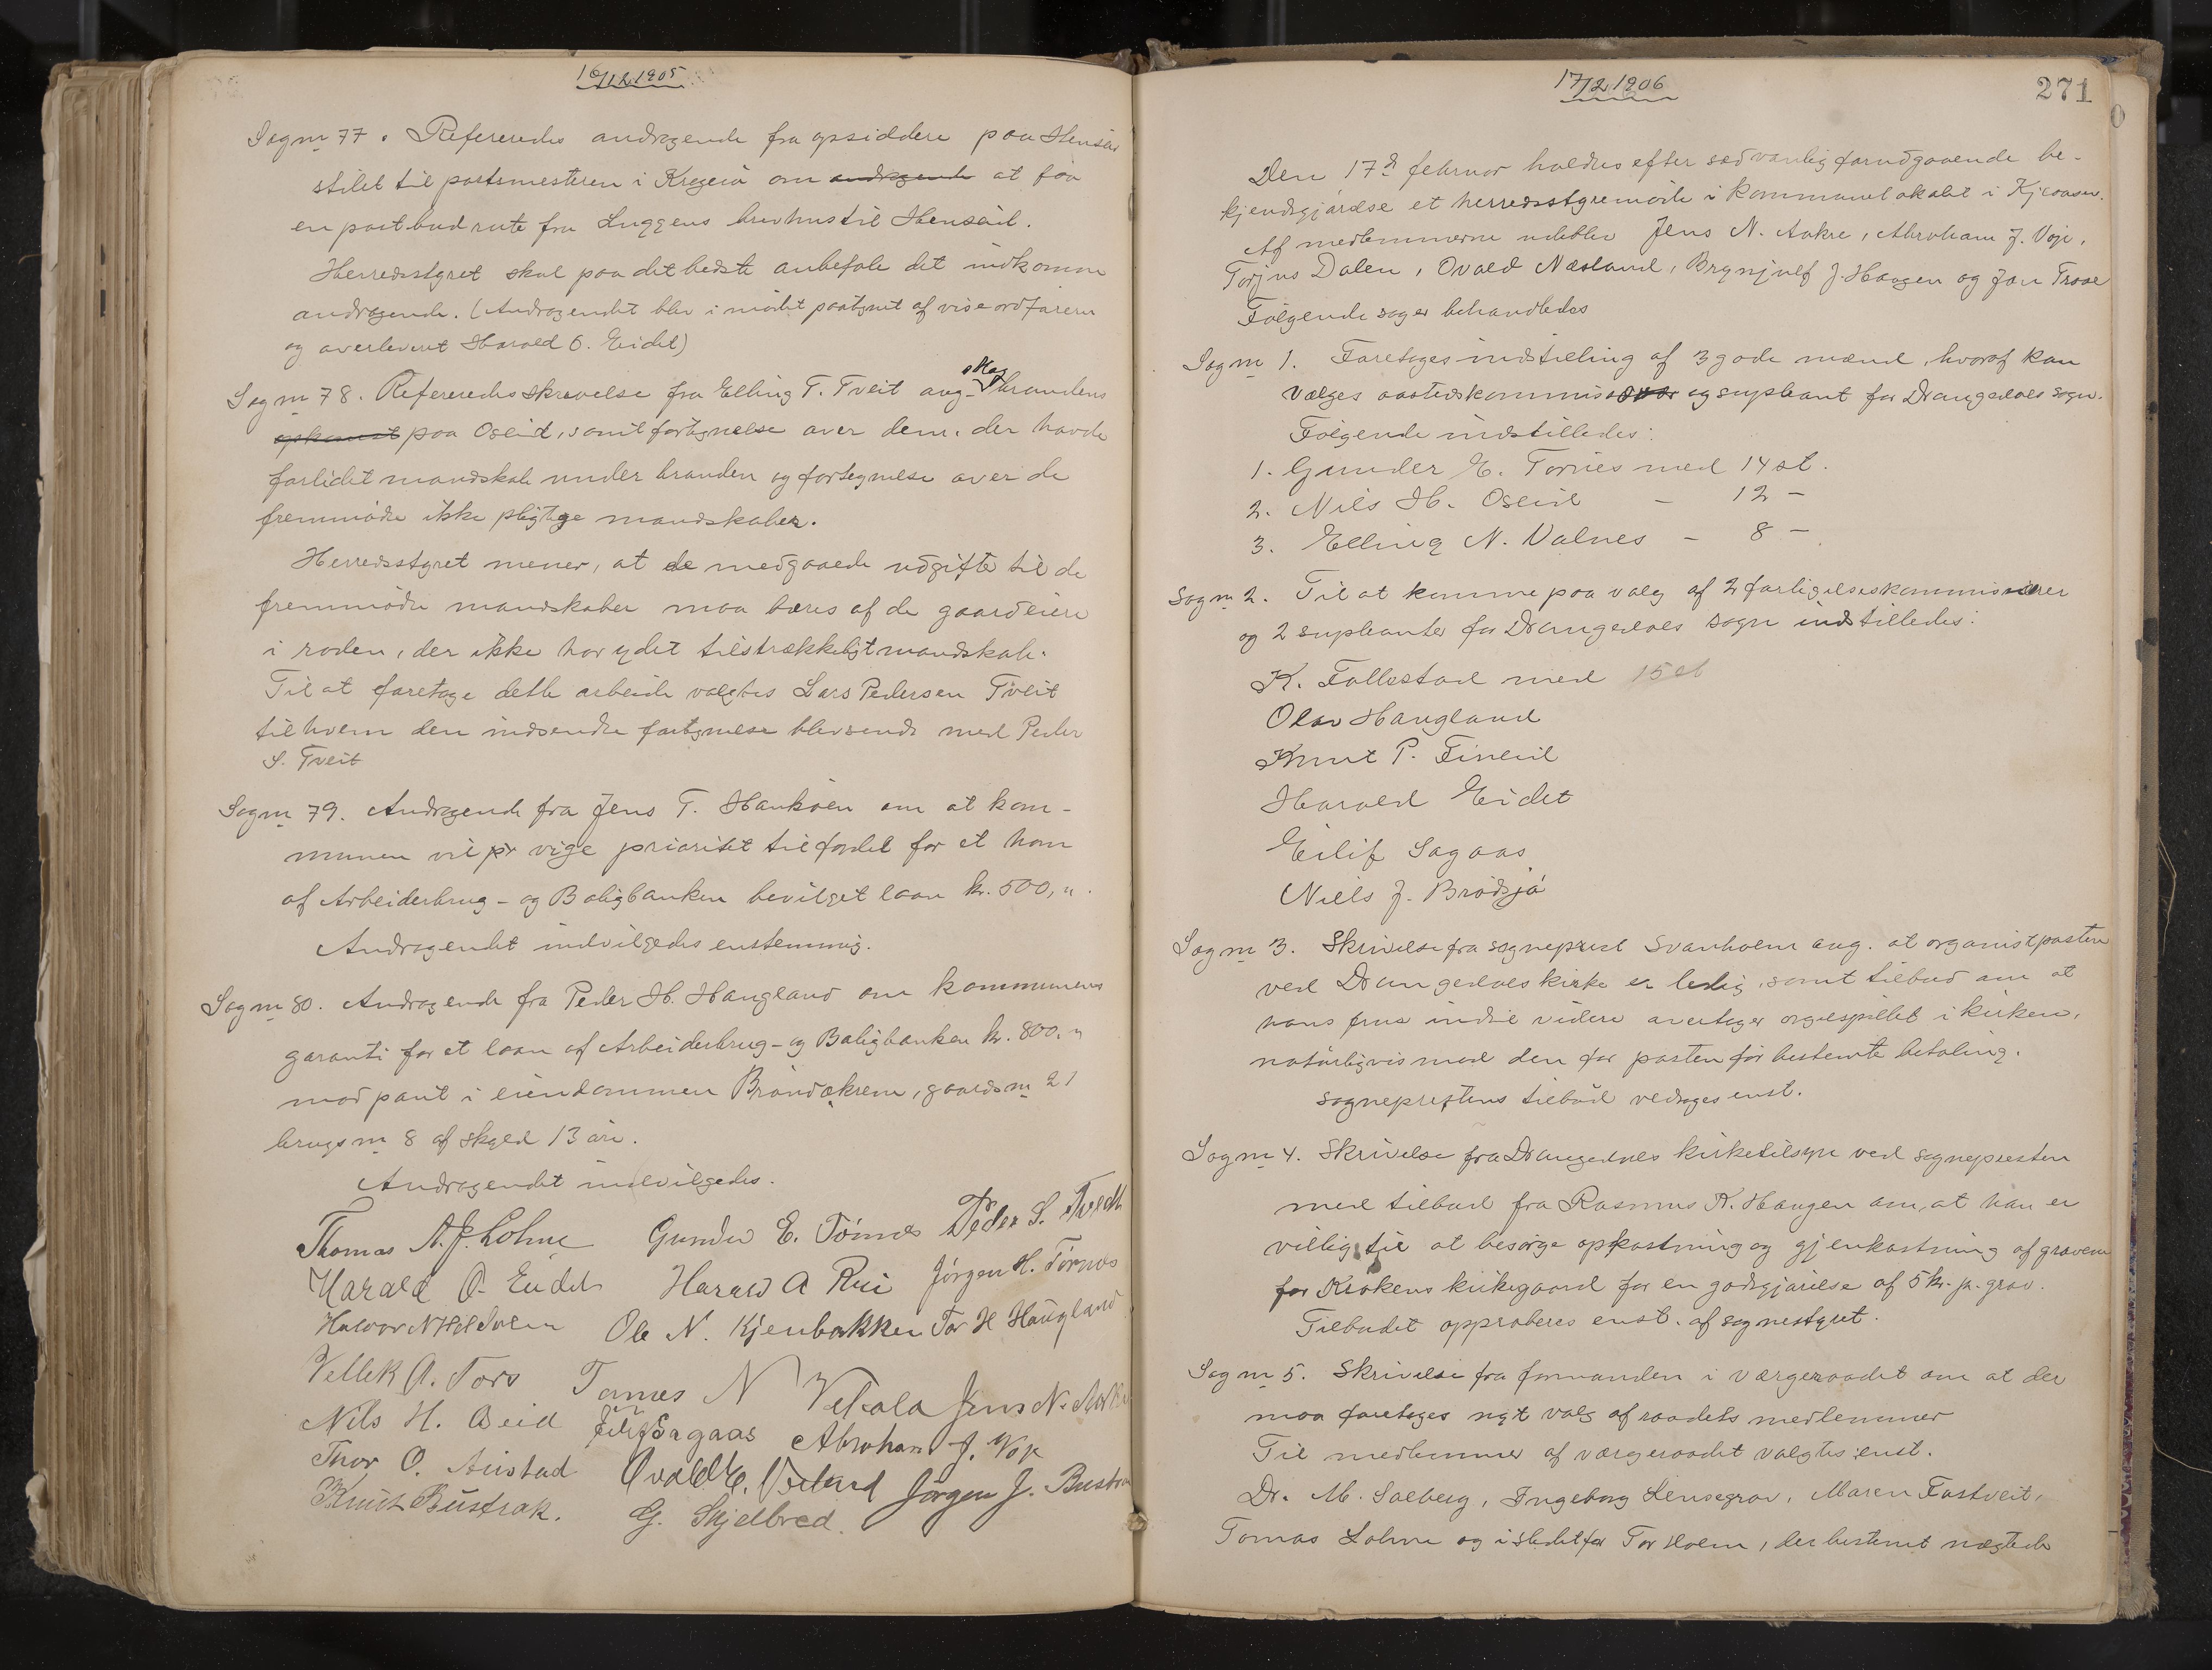 16/12 1905
Sag nr 77. Refereredes andragende fra opsiddere paa Henseid
stilet til postmesteren i Kragerø om andragende at faa
en postbud rute fra Luggens brevhus til Henseid.
Herredsstyret skal paa det bedste anbefale det indkomne
andragende. (Andragendet blev i mødet paategnet af viseordføreren
og overleveret Harald O. Eidet)
Sag nr 78. Refereredes skrivelse fra Elling T. Tveit ang. skogbrandens
opkomst paa Oseid, samt fortegnelse over dem, der havde
forlidet mandskab under branden og fortegnelse over de
fremmødte ikke pligtige mandskaber.
Herredsstyret mener, at de medgaaede udgifter til de
fremmødte mandskaber maa bæres af de gaardeiere
i roden, der ikke har ydet tilstrækkeligt mandskab.
Til at foretage dette arbeide valgtes Lars Pedersen Tveit
til hvem den indsendte fortegnelse blev sendt med Peder
S. Tveit
Sag nr 79. Andragende fra Jens T. Haukøen om at kom-
munen vil vige prioritet til fordel for et ham
af Arbeiderbrug- og Boligbanken bevilget laan kr. 500,".
Andragendet indvilgedes enstemmig.
Sag nr 80. Andragende fra Peder H. Haugland om kommunens
garanti for et laan af Arbeiderbrug- og Boligbanken kr. 800,"
mod pant i eiendommen Brøndakrene, gaards nr 21
brugs nr 8 af skyld 13 øre.
Andragendet indvilgedes.
Thomas A. J. Lohne Gunder E. Tørnes Peder S. Tvedt
Harald O. Eidet Harald A Rui Jørgen H. Tørnes
Halvor N Ole N. Kjenbakken Tor H Haugland
Vetlek A. Tors Tomes N Vefala Jens N. Aakre
Nils H. Oseid Eilif Sagaas Abraham J. Voje
Thor O. Austad Ovald E. Jørgen J. Bustrak
Knut Bustrak. G. Skjelbred.
17/2 1906
271
Den 17d februar holdtes efter sedvanlig forudgaaende be-
kjendtgjørelse et herredsstyremøde i kommunelokalet i Kjeaasen.
Af medlemmerne udeblev Jens N. Aakre, Abraham J. Voje,
Torjus Dalen, Ovald Næsland, Brynjulf J. Haugen og Jon Traae
Følgende sager behandledes
Sag nr 1. Foretoges indstilling af 3 gode mænd, hvoraf kan
vælges aastedskommissær og supleant for Drangedals sogn.
Følgende indstilledes:
1. Gunder E. Tørnes med 14 st.
2. Nils H. Oseid – 12 –
3. Elling N. Valnes – 8 –
Sag nr 2. Til at komme paa valg af 2 forligelseskommissærer
og 2 supleanter for Drangedals sogn indstilledes:
K. Follestad med 15 st
Olav Haugland
Knut P. Fineid
Harald Eidet
Eilif Sagaas
Niels J. Brødsjø
Sag nr 3. Skrivelse fra sogneprest Svanholm ang. at organistposten
ved Drangedals kirke er ledig, samt tilbud om at
hans frue indtil videre overtager orgelspillet i kirken,
naturligvis mod den for posten før bestemte betaling.
Sogneprestens tilbud vedtoges enst.
Sag nr 4. Skrivelse fra Drangedals kirketilsyn ved sognepresten
med tilbud fra Rasmus K. Haugen om, at han er
villig til at besørge opkastning og gjenkastning af gravene
for Krokens kirkegaard for en godtgjørelse af 5 kr. pr. grav.
Tilbudet approberes enst. af sognestyret.
Sag nr 5. Skrivelse fra formanden i værgeraadet om at der
maa foretages nyt valg af raadets medlemmer
Til medlemmer af værgeraadet valgtes enst.
Dr. M. Solberg, Ingeborg Lensegrav, Maren Fostveit,
Tomas Lohne og istedetfor Tor Holm, der bestemt nægtede